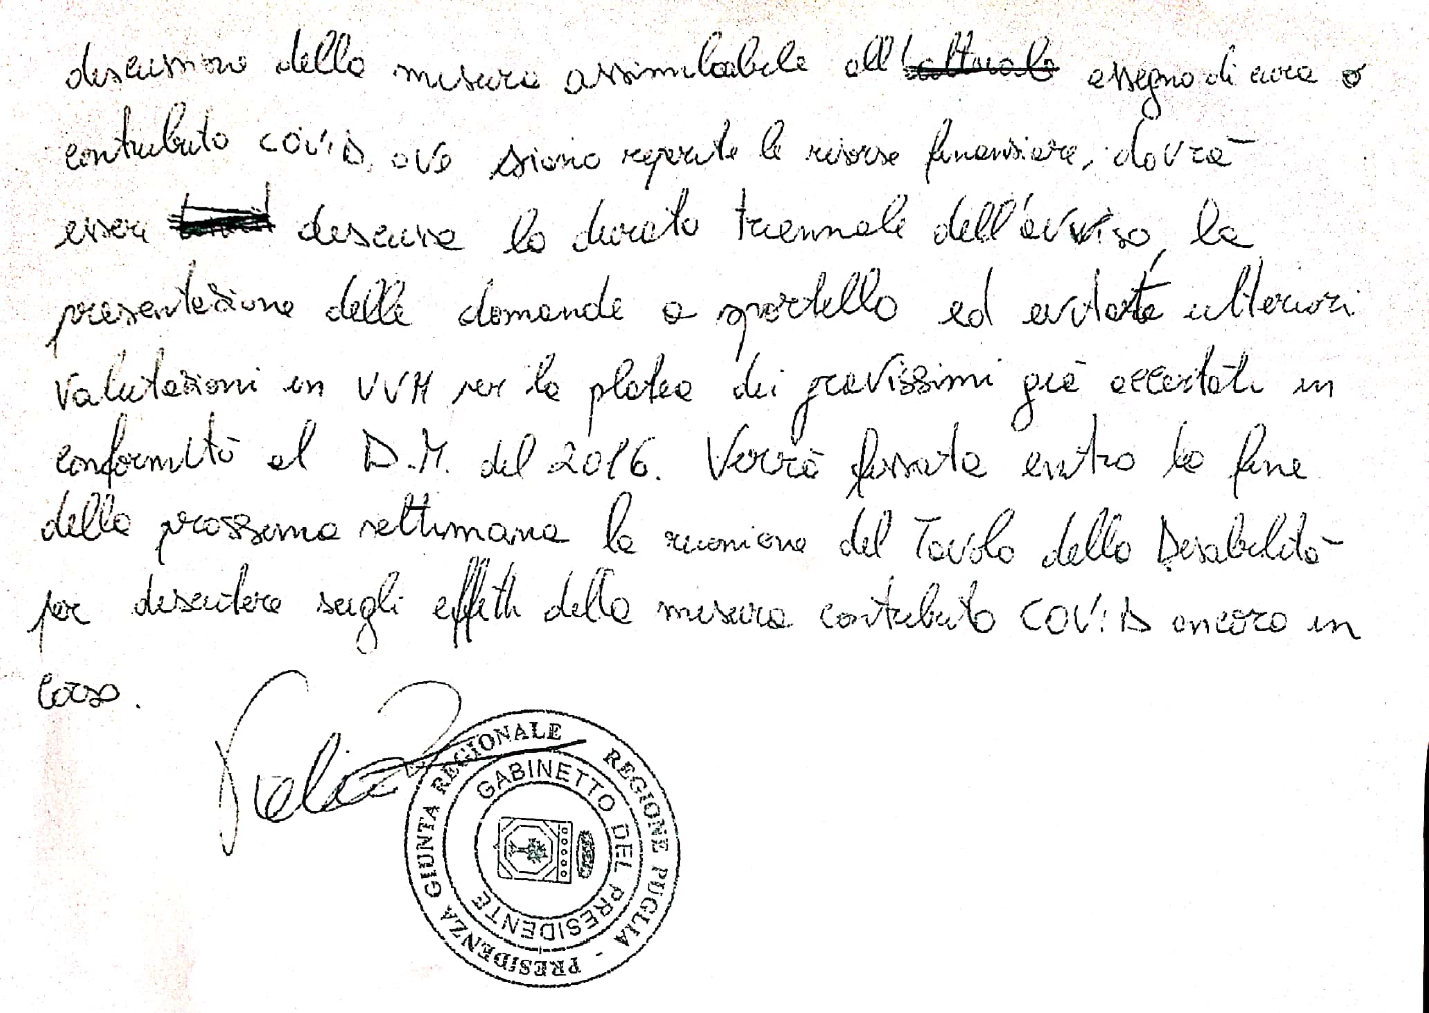 discussione della misura assimilabile all'attuale assegno di cura o
contributo COViD, ove siano reperite le risorse finanziare, dovrà
essere discussa la durata triennale dell'avviso, la
presentazione delle domande a sportello ed evitate ulteriori
valutazioni in UVM per la platea dei gravissimi già accertati in
conformità al D.M. del 2016. Verrà fissata entro la fine
della prossima settimana la riunione del Tavolo della Disabilità
per discutere sugli effetti della misura contributo COViD ancora in
corso.
PRESIDENZA GIUNTA REGIONALE REGIONE PUGLIA -
GABINETTO DEL PRESIDENTE